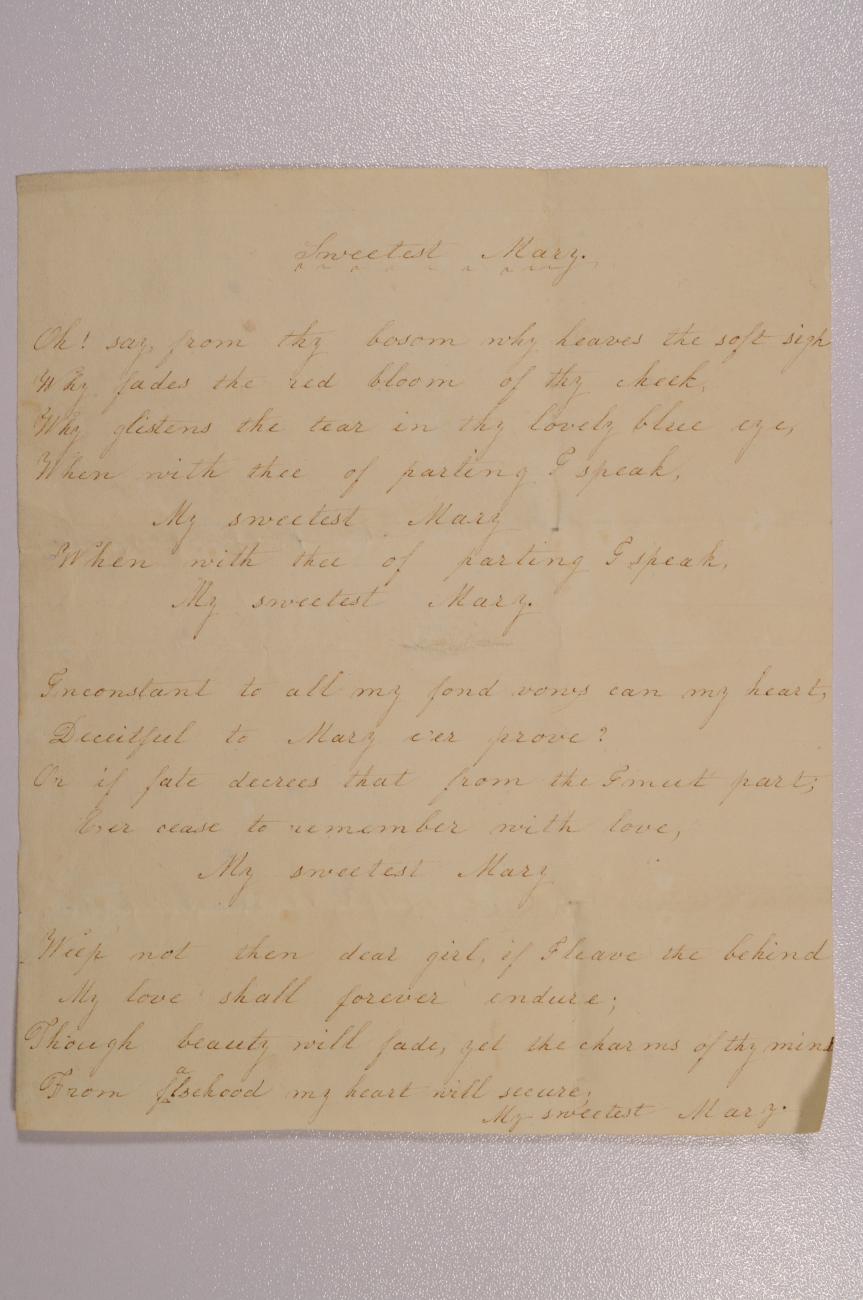 Sweetest Mary.
Oh! say, from thy bosom why heaves the soft sigh
Why fades the red bloom of thy cheek,
Why glistens the tear in thy lovely blue eye,
When with thee of parting I speak,
My sweetest Mary
When with thee of parting I speak,
My sweetest Mary.
Inconstant to all my fond vows can my heart,
Deceitful to Mary e'er prove?
Or if fate decrees that from the I must part;
Ever cease to remember with love,
My sweetest Mary
Weep not then dear girl, if I leave the behind
My love shall forever endure;
Though beauty will fade, yet the charms of thy mind
From falsehood my heart will secure,
My sweetest Mary.